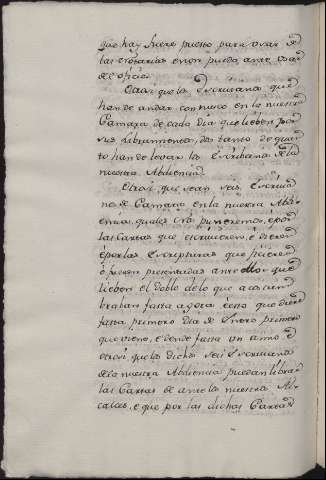 que hay fuere puesto para usar de
las notarias e non pueda ante usar
del oficio.
Otrosi que los Escribanos que
han de andar connusco en la nuestra
Camara de cada dia que lieben por
sus sabrimientos, dos tanto de quan
to han de levar los Escribanos de la
nuestra Abdiencia.
Otrosi, que sean seis Escriva
nos de Camara en la nuestra Abdi
encia, quales Nos pusieremos, e por
las Cartas que escrivieren, e dieren
e por las Escripturas que ficieren
o fueren presentadas ante ellos que
lieben el doble de lo que acostum
braban fasta agora: e esto que dure
fasta primero dia de Enero primero
que viene, e dende fasta un año e
otrosi que los dichos seis Escrivanos
de la nuestra Abdiencia puedan librar
las Cartas de ante los nuestros Al
caldes, e que por las dichas Cartas